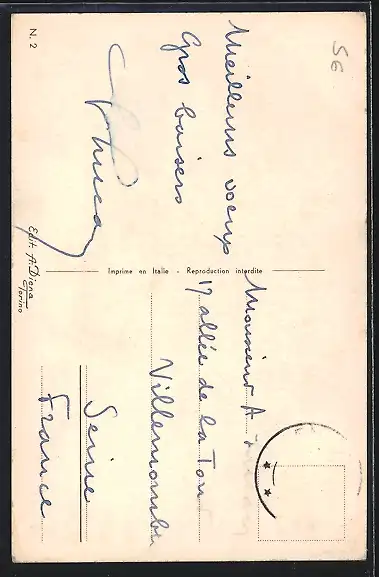 56
Meilleurs voeux
Gros baisers
N. 2
Edit. A. Diena
Torino
Imprime en Italie - Reproduction interdite
Monsieur A
17 allée de la Tour
Villemomble
Seine
France